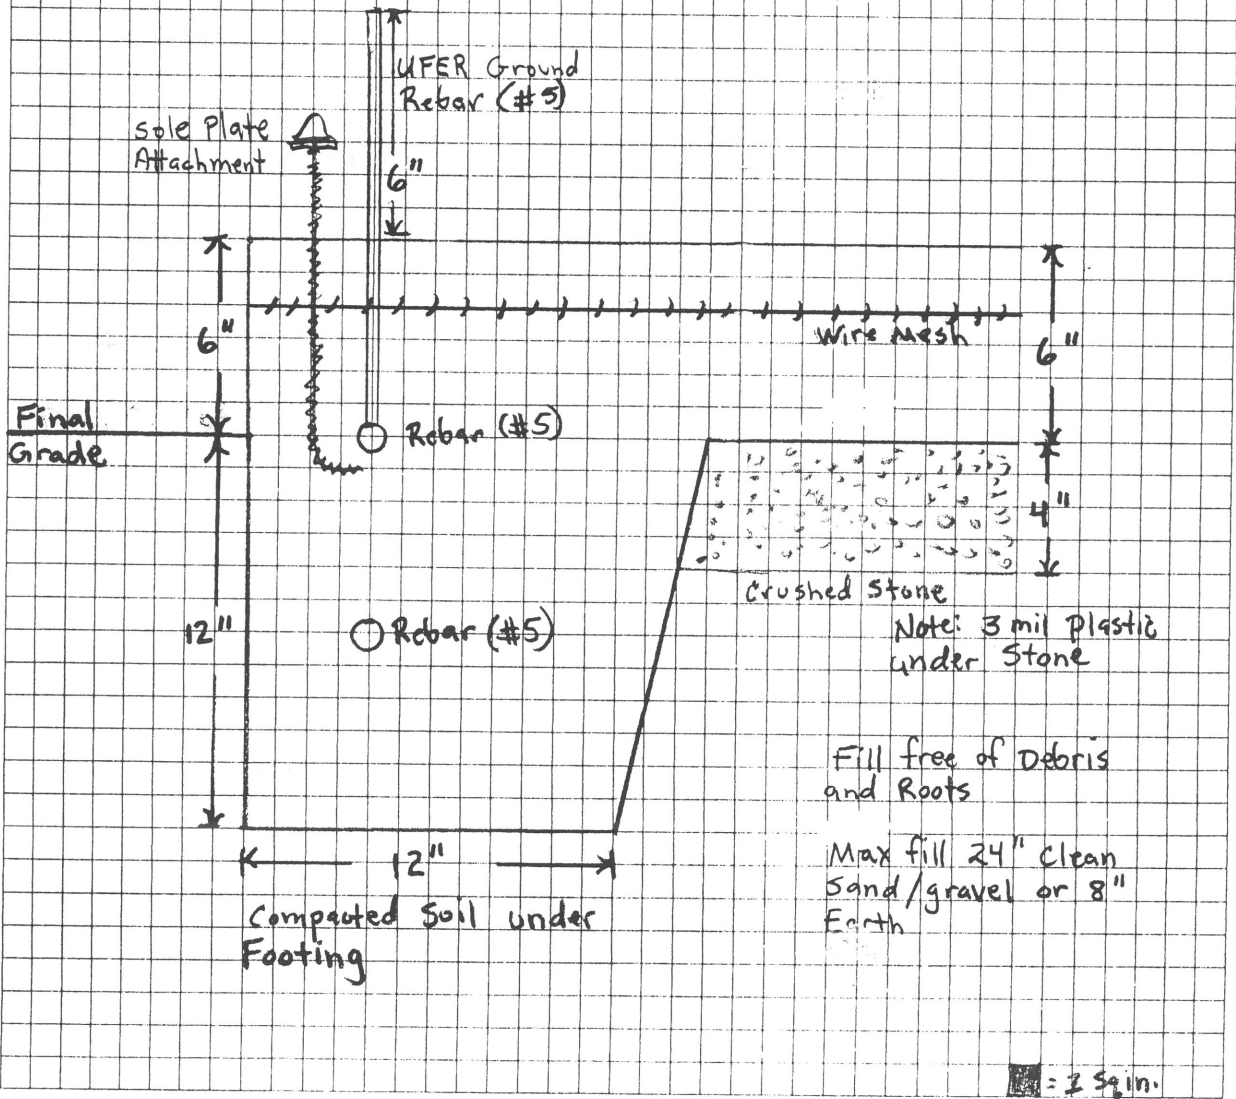 UFER Ground
Rebar (#5)
6"
Sole Plate
Attachment
6"
Wire Mesh
6"
Final
Grade
Rebar (#5)
4"
Crushed Stone
Note: 3 mil Plastic
under Stone
12"
Rebar (#5)
Fill free of Debris
and Roots
12"
Max fill 24" Clean
Sand/gravel or 8"
Earth
Compacted Soil under
Footing
= 1 Sq in.